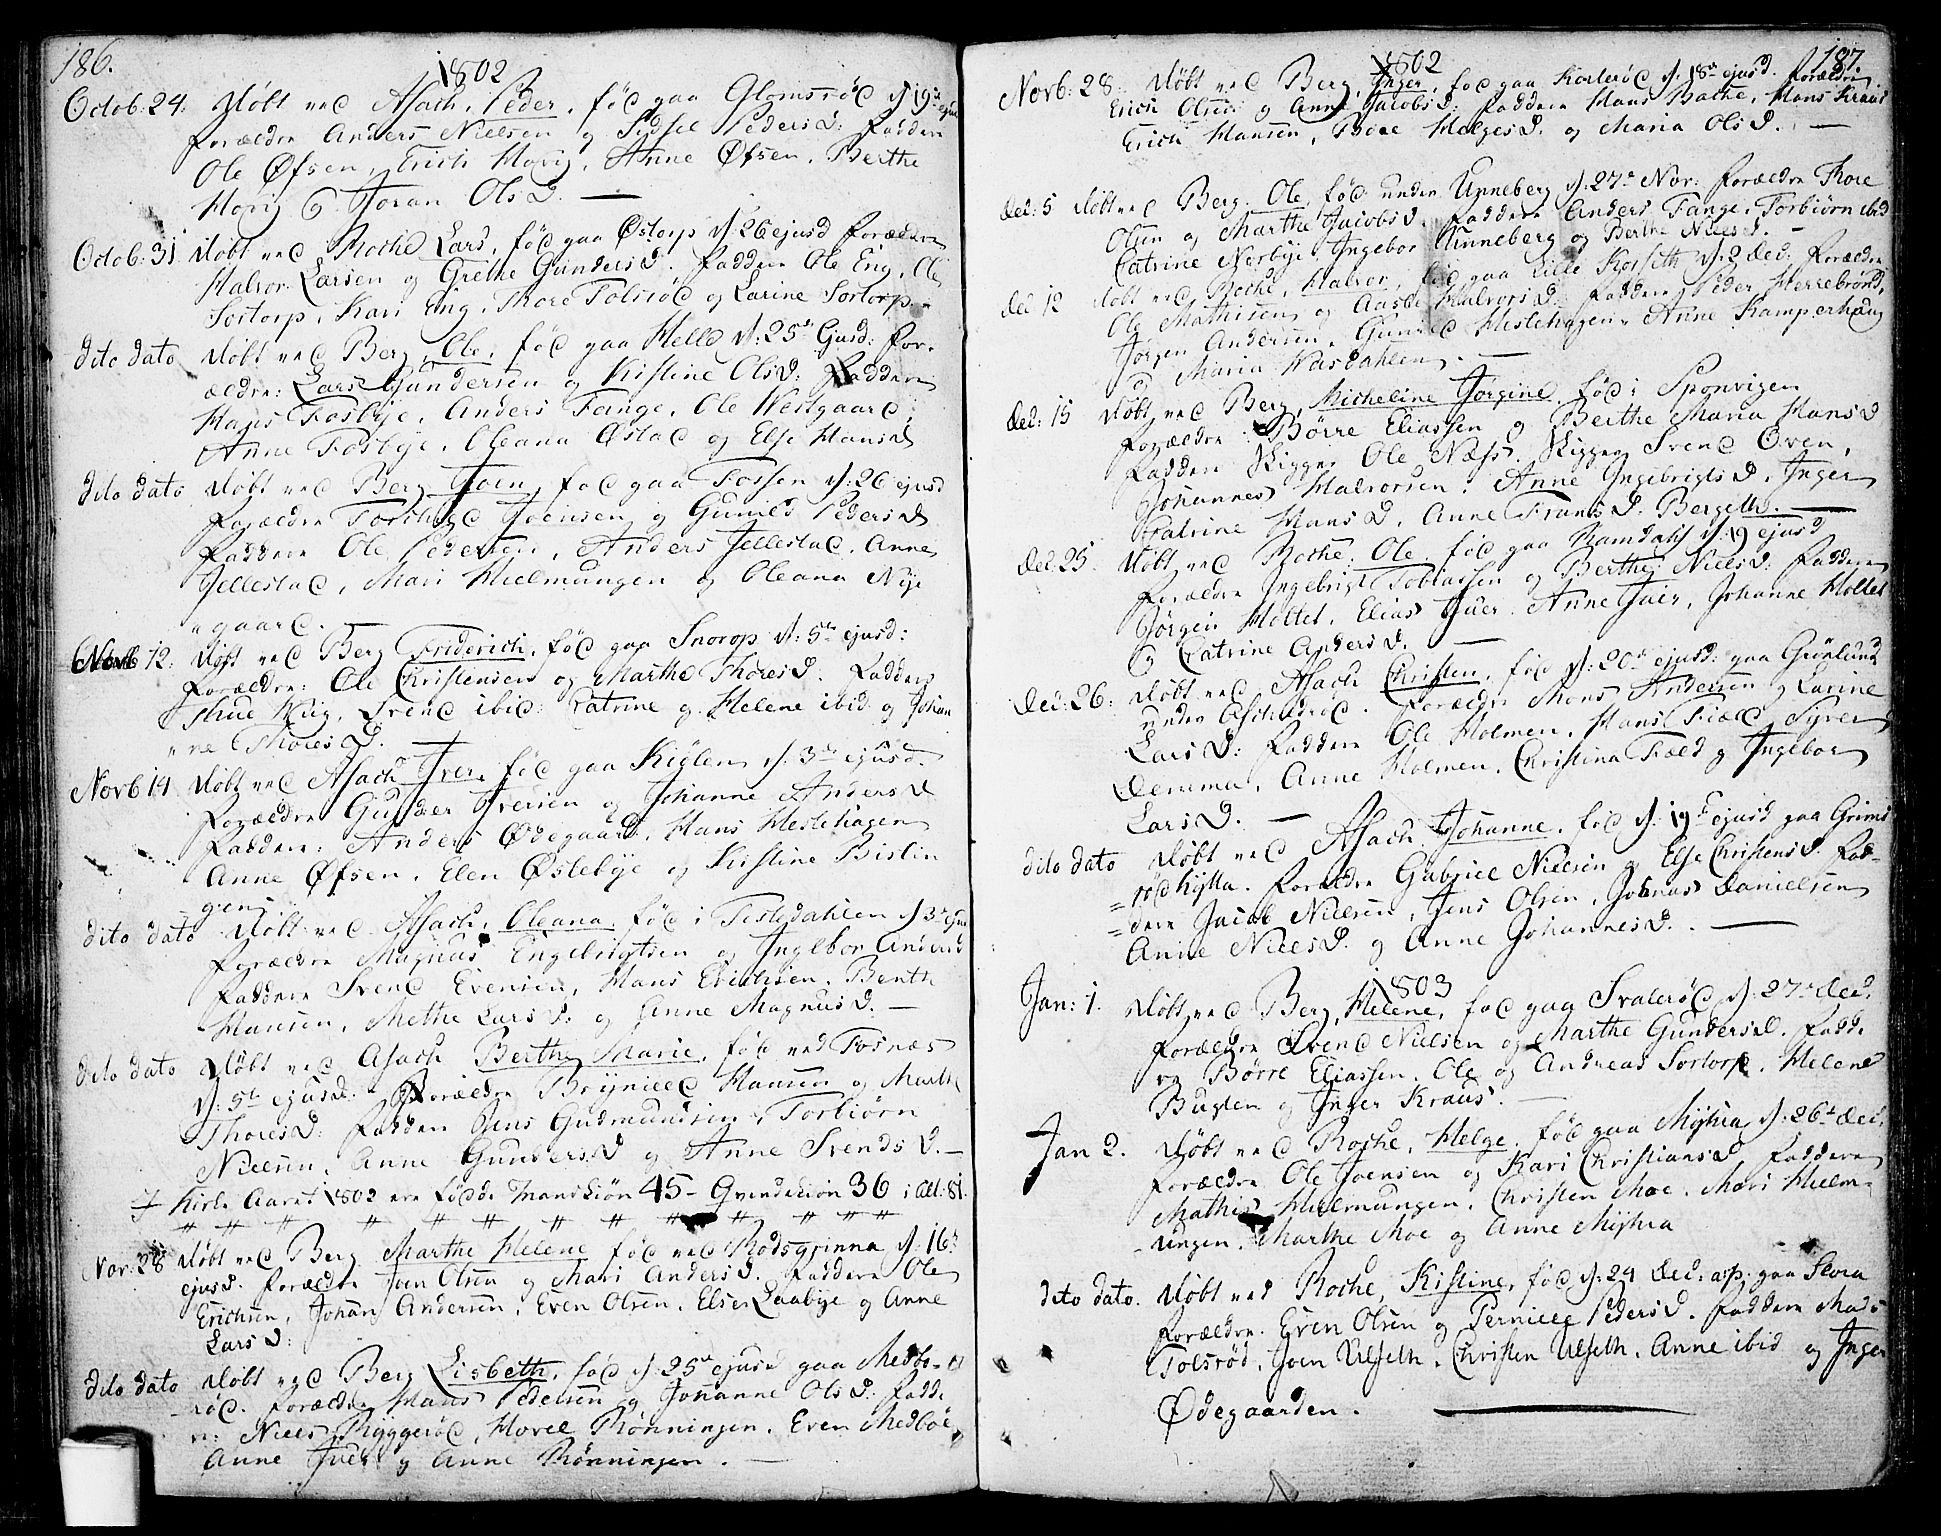 186.
1802
Octob. 24. Døbt ved Asach, Peder, fød paa Glomsrød d: 19de ejusd
Forældre Anders Nielsen og Sidsel PedersD: Faddere
Ole Øfsen, Erich Hovig, Anne Øfsen, Berthe
Hovig & Joran OlsD. —
Octob: 31. Døbt ved Rocke Lars, fød paa Østorp d: 26 ejusd Forældre
Halvor Larsen og Grethe GundersD. Faddere Ole Eng, Ole
Sortorp, Kari Eng, Thore Tolsrød og Larine Sortorp
dito dato Døbt ved Berg, Ole, fød paa Helle d: 25de Ejusd: For-
ældre: Lars Gundersen og Kistine OlsD: Faddere
Hans Fosbye, Anders Tange, Ole Westgaard,
Anne Fosbye, Oleana Østad og Else HansD
dito dato Døbt ved Berg Joen, fød paa Fossen d: 26 ejusd
Forældre Joensen og Gunild PedersD
Faddere Ole Pedersen, Anders Jellestad, Anne
Jellestad, Mari Hielmungen og Oleana Nye
"gaard.
Norb 12. Døbt ved Berg Friderich, fød paa Snorop d: 5te ejusd:
Forældre: Ole Christensen og Marthe ThoresD. Faddere
Thue Wiig, Svend ibid: Catrine og Helene ibid og Johan
"ne ThoresD.
Norb 14 Døbt ved Asach Iver, fød paa Kiølen d: 3de ejusd.
Forældre Gunder Iversen og Johanne AndersD
Faddere: Anders Ødegaard, Hans Hestehagen
Anne Øfsen, Elen Østebye og Kistine Bislin
gen
dito dato Døbt ved Asach, Oleana, fød i Tistedahlen d 3de ejusd
Forældre Magnus Engebrigtsen og Ingebor AndersD
Faddere Svend Evensen, Hans Erichsen, Berth
Hansen, Methe LarsD: og Anne MagnusD. —
dito dato Døbt ved Asach Berthe Marie, fød ved Fosnæs
d: 5te ejusd. Forældre Brynild Hansen og Marthe
ThoresD: Faddere Jens Gudmundsen, Torbiørn
Nielsen, Anne GundersD og Anne SvendsD. —
I Kirke Aaret 1802 ere fødde Mandkiøn 45 - Qvindekiøn 36 i Alt: 81.
Nor: 28 Døbt ved Berg Marthe Helene fød ved Rødsgrinna d: 16de
ejusd. Forældre Joen Olsen og Mari AndersD. Faddere Ole
Erichsen, Johan Andersen, Even Olsen, Else Laabye og Anne
LarsD:
dito dato Døbt ved Berg Lisbeth, fød d: 25de ejusd paa Medbø-
rød. Forældre Hans Pedersen og Johanne OlsD: Fadde
re: Niels Ryggerød, Hovel Rønningen, Even Medbøe,
Anne Juer og Anne Rønningen. —
187.
1802
Norb: 28. Døbt ved Berg, Inger, fød paa Kolerød d. 18de ejusd. Forældre
Erich Olsen og Anne JacobsD: Faddere Hans Bakke, Hans Kraus
Erich Hansen, Boee HelgesD. og Maria OlsD. —
Dec: 5 Døbt ved Berg. Ole, fød under Unneberg d. 27de Nor: Forældre Thore
Olsen og Marthe JacobsD. Faddere Anders Tange, Torbiørn ibid
Catrine Norbye, Ingebor Unneberg og Berthe NielsD. -
Dec 12 Døbt ved Rocke, Halvor, fød paa Lille Kosseth d: 2 Dec: Forældre
Ole Mathisen og Aaste HalvorsD: Faddere Peder Herrebrønd,
Jørgen Andersen, Gunild Hestehagen, Anne Kamperhaug
og Maria Wasdahlen. —
Dec: 15 Døbt ved Berg, Micheline Jørgine, fød i Sponvigen
Forældre: Børre Eliassen og Berthe Maria HansD
Faddere Rigger Ole Næss, Rigger Svend Oven,
Johannes Halvorsen, Anne IngebrigtsD, Inger
Catrine HansD, Anne FransD. Bergeth. —
Dec: 25. Døbt ved Rocke, Ole, fød paa Ramdahl d: 19 ejusd
Forældre Ingebrigt Tobiassen og Berthe NielsD: Faddere
Jørgen Holtet, Elias Juer, Anne Juer, Johanne Holtet
og Catrine AndersD. —
Dec: 26: Døbt ved Asach Christen, fød d: 20de ejusd: paa Grønlund
under Askerød. Forældre Mons Andersen og Larine
LarsD: Faddere Ole Holmen, Hans Field, Syver
Demma, Anne Holmen, Christina Fæld og Ingebor
LarsD. —
dito dato Døbt ved Asach Johanne, fød d: 19de ejusd paa Grims
=rød hytta. Forældre Gabriel Nielsen og Else ChristensD. Fad-
=dere Jacob Nielsen, Jens Olsen, Johnas Danielsen
Anne NielsD. og Anne JohannesD. —
1803
Jan: 1. Døbt ved Berg, Helene, fød paa Svalerød d: 27de Dec.
Forældre Svend Nielsen og Marthe GundersD. Fadde
re Børre Eliassen, Ole og Andreas Sortorp, Helene
Buglen og Inger Kraus. —
Jan 2. Døbt ved Rocke, Helge, fød paa Myhra d: 26de Dec,
Forældre Ole Joensen og Kari ChristiansD Faddere
Mathis Hielmungen, Christen Moe, Mari Hielm-
-ungen, Marthe Moe og Anne Myhra
dito dato. Døbt ved Rocke, Kistine, fød d: 24 Dec: a:p: paa Skora
Forældre. Even Olsen og Pernille PedersD. Faddere Mads
Tolsrød, Joen Ulseth, Christen Ulseth, Anne ibid og Inger
Ødegaarden.